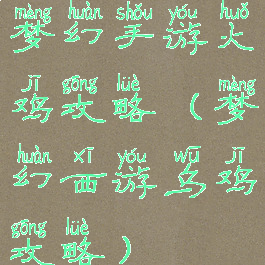 mèng huàn shǒu yóu huǒ
梦幻手游火
jī gōng lüè mèng
鸡攻略(梦
huàn xī yóu wū jī
幻西游乌鸡
gōng lüè
攻略)